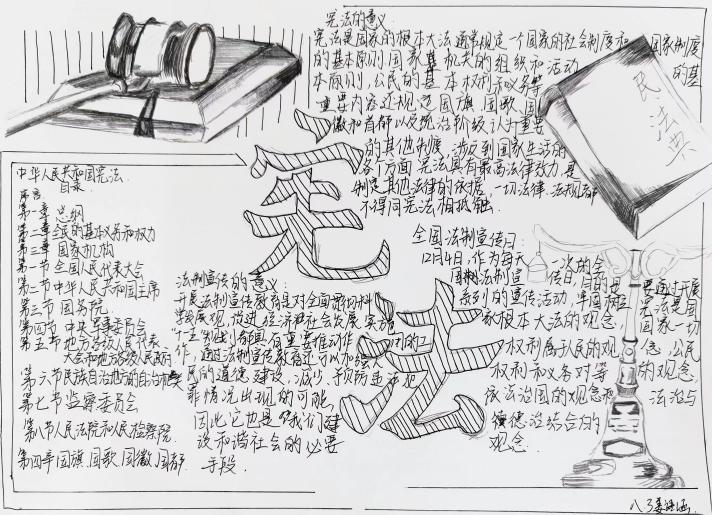 宪法的意义:
宪法是国家的根本大法通常规定一个国家的社会制度和国家制度
的基本原则国家机关的组织和活动的基
本原则,公民的基本权利和义务等
重要内容还规范国旗国歌国
徽和首都以及统治阶级认为重要
的其他制度,涉及到国家生活的
各个方面,宪法具有最高法律效力,是
制定其他法律的依据,一切法律,法规都
不得同宪法相抵触.
民法典
宪法
中华人民共和国宪法
目录
序言
第一章 总纲
第二章
第三章 国家机构
第一节 全国人民代表大会
第二节中华人民共和国主席
第三节 国务院
第四节 中央军事委员会
第五节地方各级人民代表
大会和地方各级人民政府
第六节民族自治地方的自治机关
第七节监察委员会
第八节人民法院和人民检察院.
第四章国旗,国歌,国徽,国都.
法制宣传的意义:
开展法制宣传教育是对全面
发展观,改进经济和社会发展实施
有重要推动作用的工
作,通过法制宣传教育还可以
民的道德建设,减少,预防
罪情况出现的可能,
因此它也是我们建
设和谐社会的必要
手段.
全国法制宣传日:
12月4日,作为每天一次的全
国法制宣传日,目的是要通过开展
系列的宣传活动,牢固树立宪法是国
家根本大法的观念,国家一切
权利属于人民的观念,公民
权利和义务对等的观念,
依法治国的观念和法治与
德治结合的
观念.